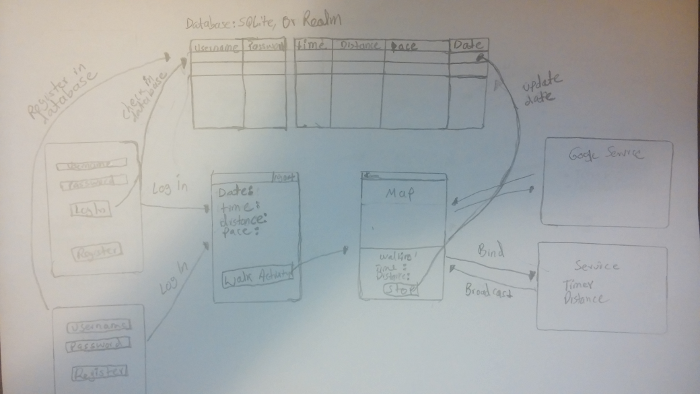 Database: SQLite, or Realm
Username Password Time Distance Pace Date
Register in
database
check in
database
update
date
Username
Password
Log In
Register
Log in
Date:
time:
distance:
Pace:
Walk
Map
time:
Distance:
Stop
Google Service
Bind
Broadcast
Service
Timer
Distance
Log in
Username
Password
Register